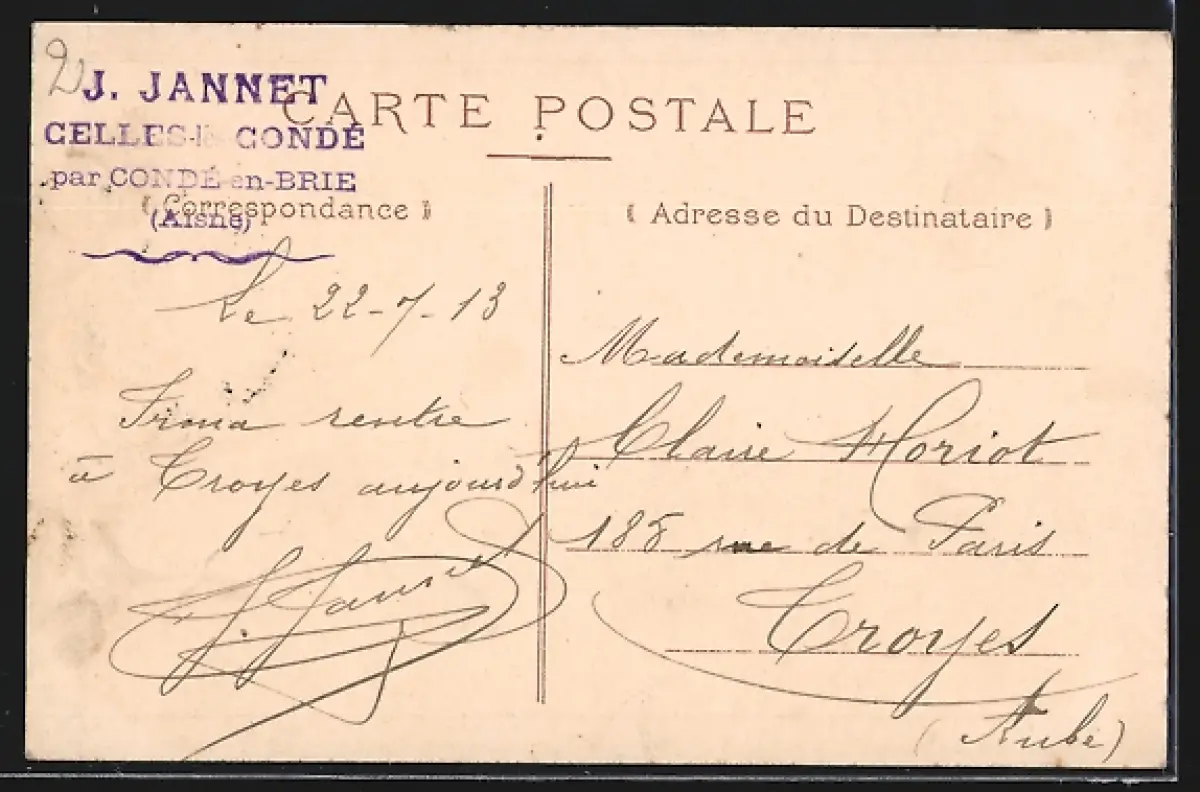 J. JANNET
CELLES-lès-CONDÉ
par CONDÉ-en-BRIE
(Aisne)
CARTE POSTALE
(Correspondance)
Le 22-7-13
Irma rentre
à Troyes aujourd'hui
J. Jannet
(Adresse du Destinataire)
Mademoiselle
Claire Horiot
188 rue de Paris
Troyes
(Aube)